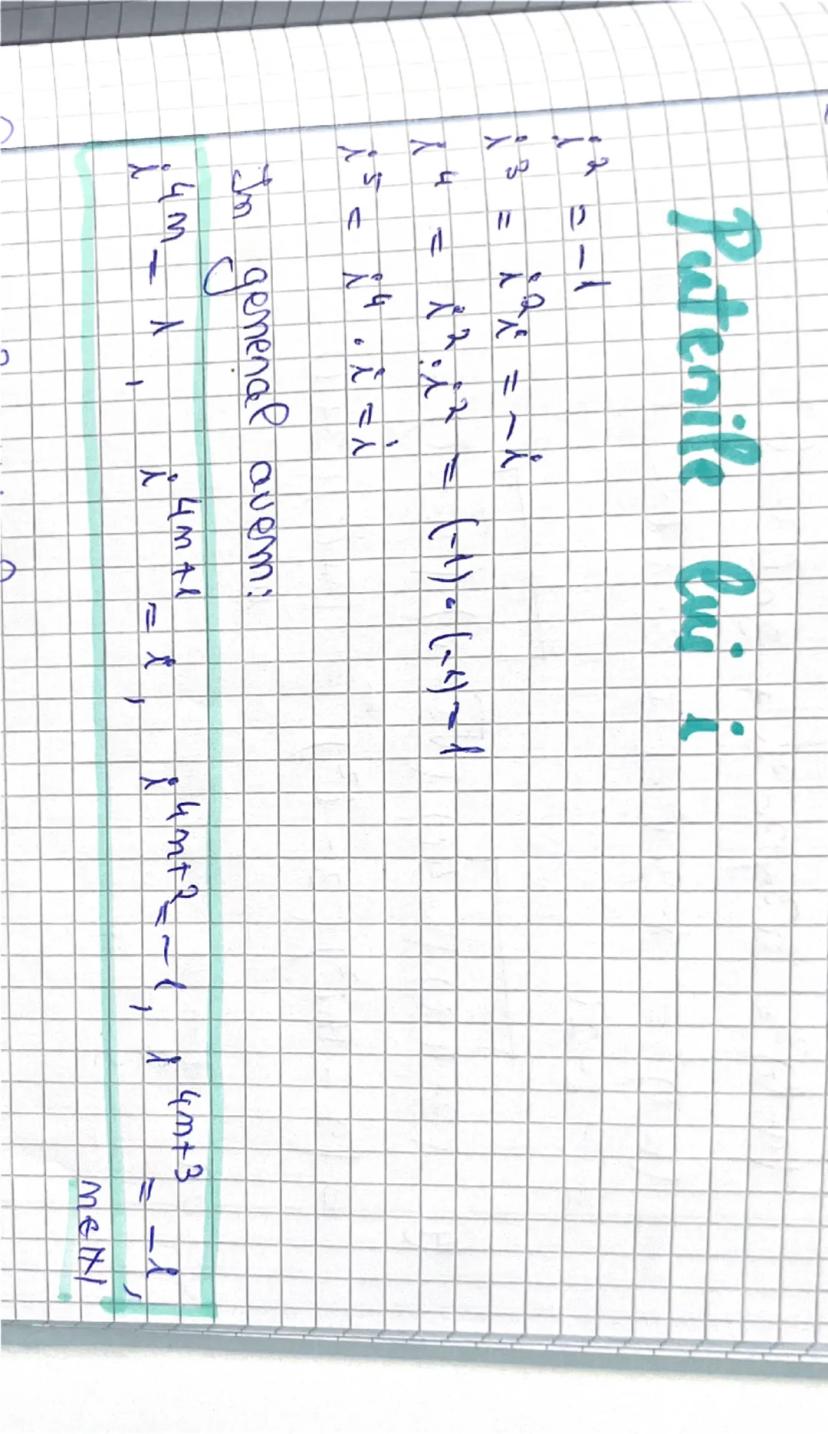 Puterile lui i
i² = -1
i³ = i²i = -i
i⁴ = i²·i² = (-1)·(-1) = 1
i⁵ = i⁴·i = i
In general avem:
i⁴ᵐ = 1, i⁴ᵐ⁺¹ = i, i⁴ᵐ⁺² = -1, i⁴ᵐ⁺³ = -i,
m∈ℕ